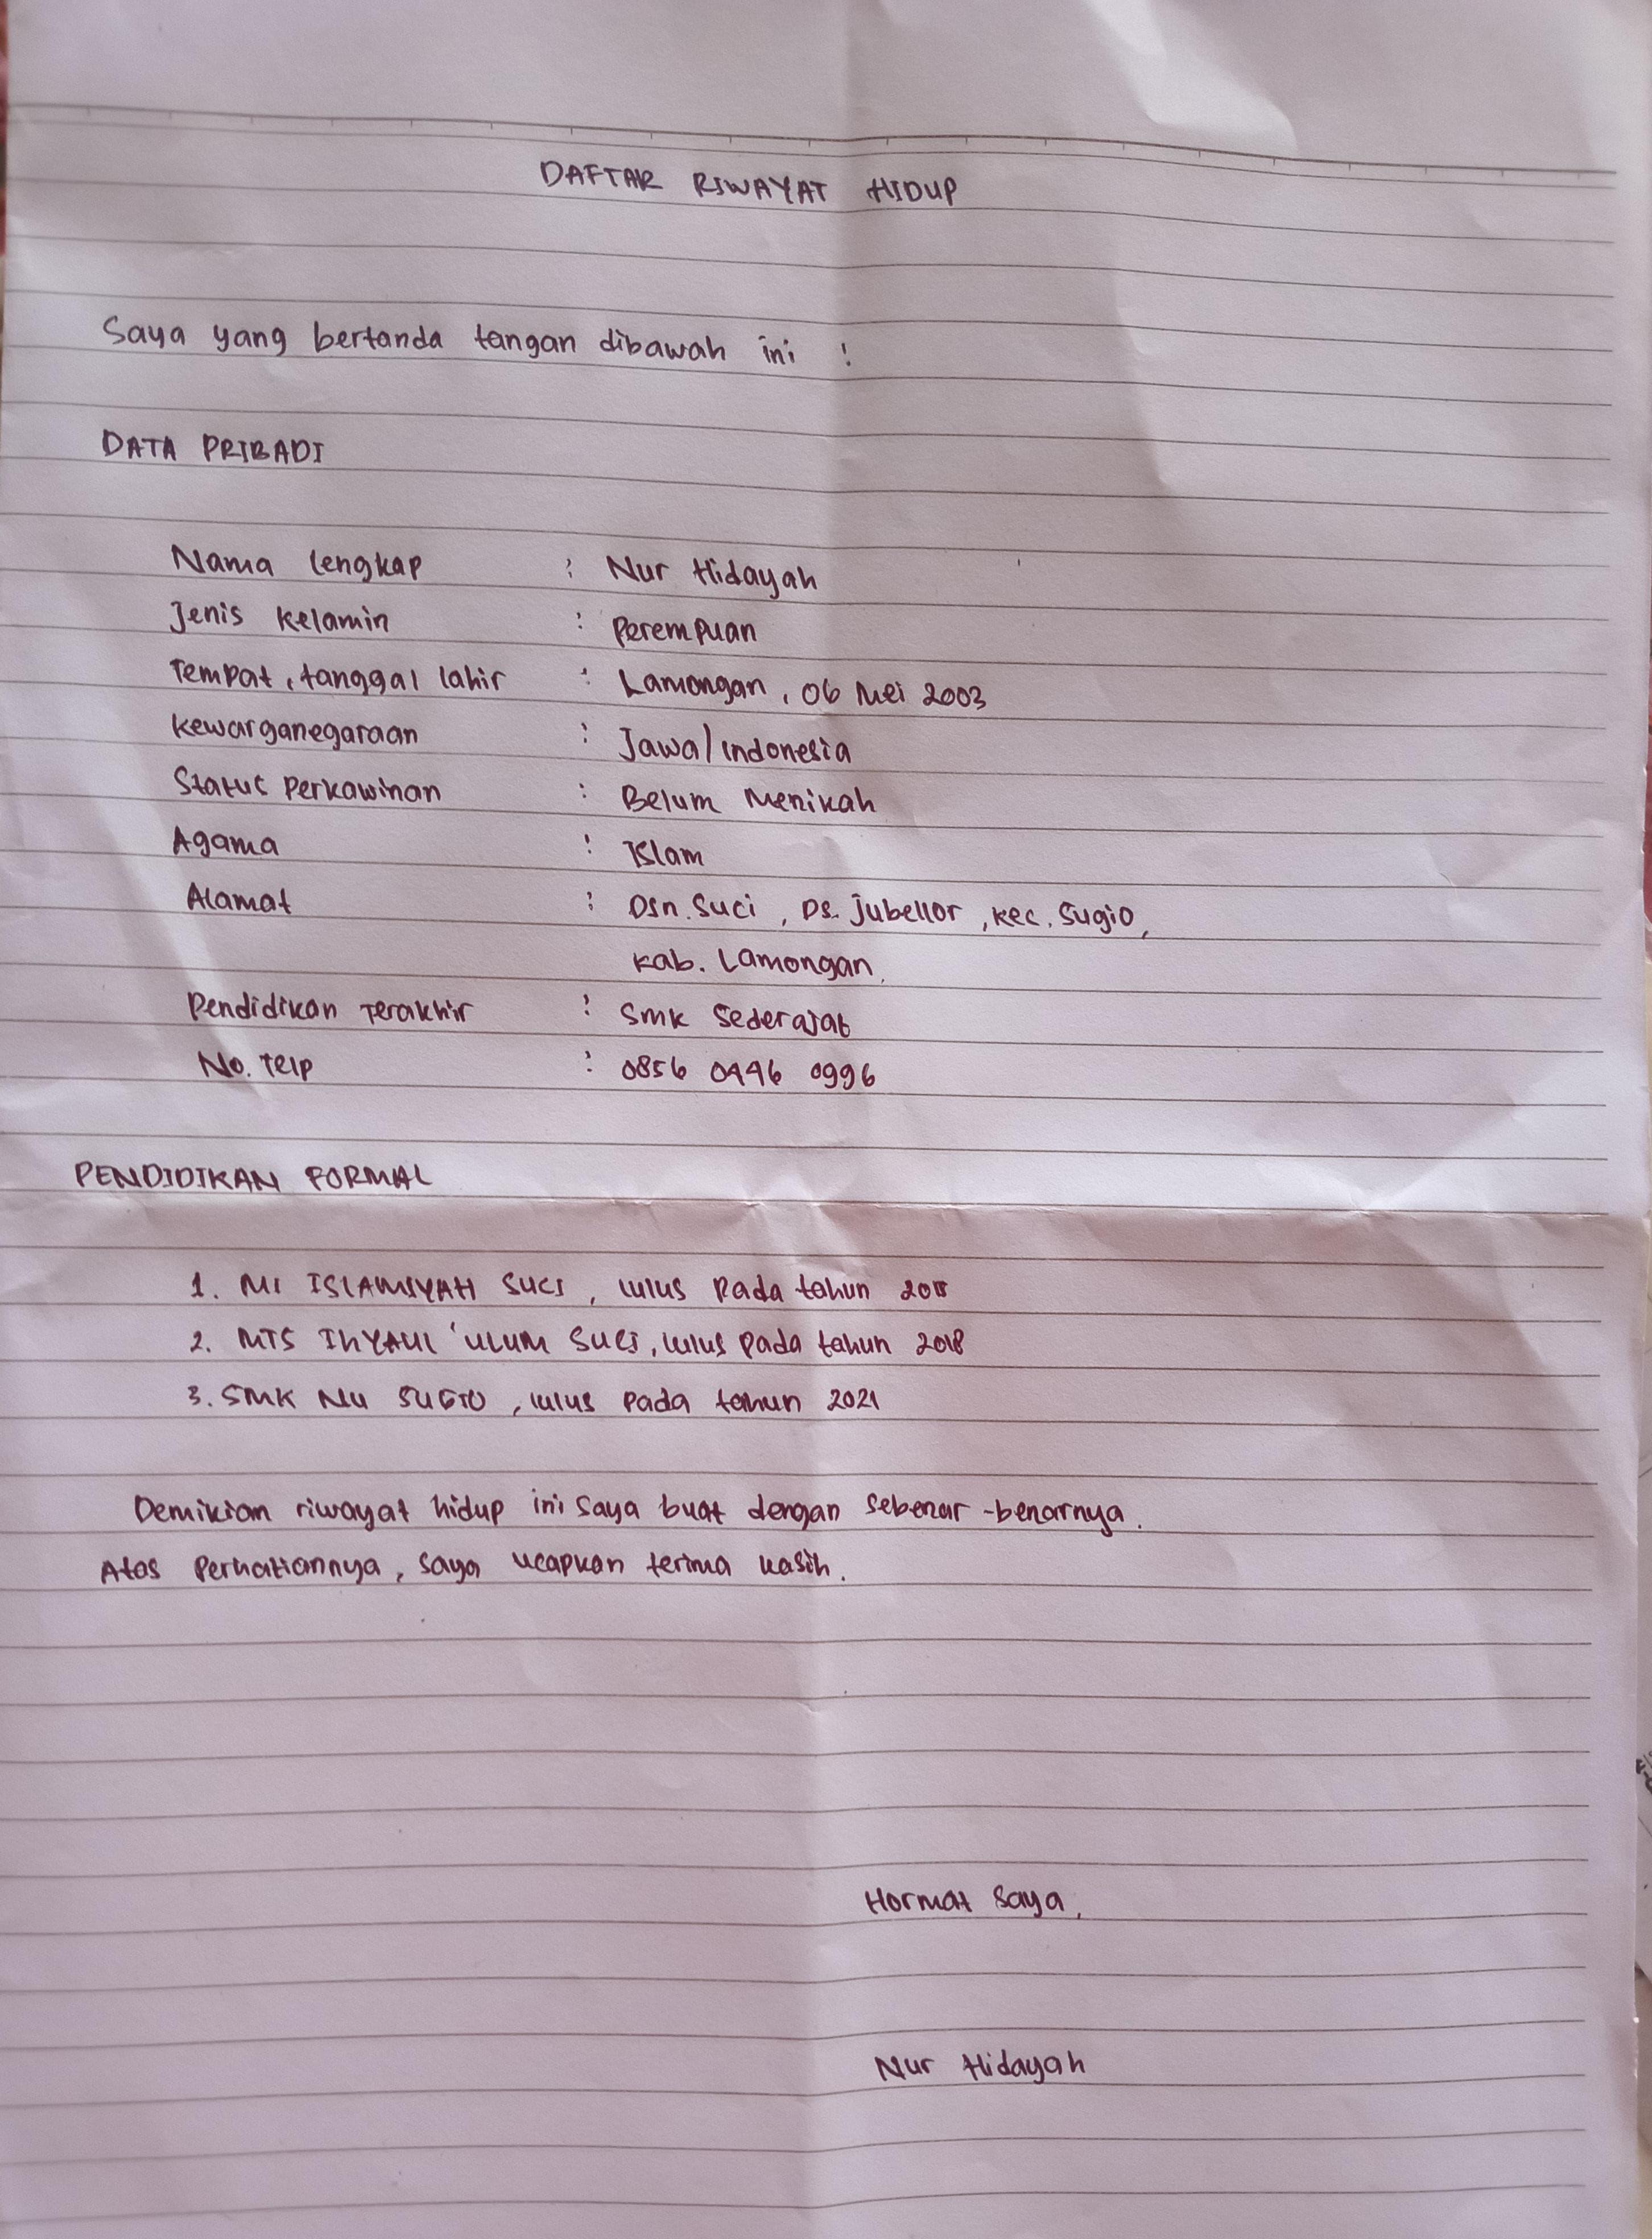 DAFTAR RIWAYAT HIDUP
Saya yang bertanda tangan dibawah ini :
DATA PRIBADI
Nama lengkap : Nur Hidayah
Jenis Kelamin : Perempuan
Tempat, tanggal lahir : Lamongan, 06 Mei 2003
Kewarganegaraan : Jawa/Indonesia
Status Perkawinan : Belum Menikah
Agama : Islam
Alamat : Dsn. Suci, Ds. Jubellor, Kec. Sugio,
Kab. Lamongan.
Pendidikan Terakhir : SMK Sederajat
No. Telp : 0856 0446 0996
PENDIDIKAN FORMAL
1. MI ISLAMIYAH SUCI, lulus pada tahun
2. MTS IHYAUL 'ULUM SUCI, lulus pada tahun 2018
3. SMK NU SUGIO, lulus pada tahun 2021
Demikian riwayat hidup ini saya buat dengan sebenar-benarnya.
Atas Perhatiannya, saya ucapkan terima kasih.
Hormat Saya,
Nur Hidayah